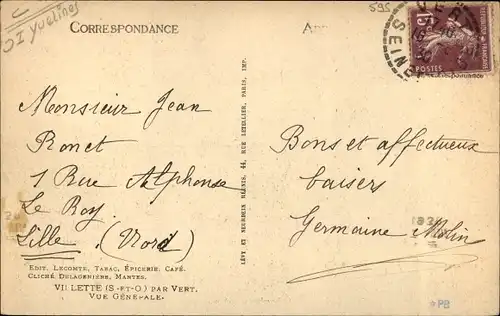 OI Yvelines
CORRESPONDANCE
595
SEINE
POSTES
Monsieur Jean
Ronet
1 Rue Alphonse
Le Roy
Lille (Nord)
EDIT. LECOMTE, TABAC, ÉPICERIE, CAFÉ.
CLICHÉ DELAGENIÈRE, MANTES.
VILLETTE (S-ET-O) PAR VERT.
VUE GÉNÉRALE.
LÉVY ET NEURDEIN RÉUNIS, 44, RUE LETELLIER, PARIS, IMP.
Bons et affectueux
baisers
Germaine Molin
PB